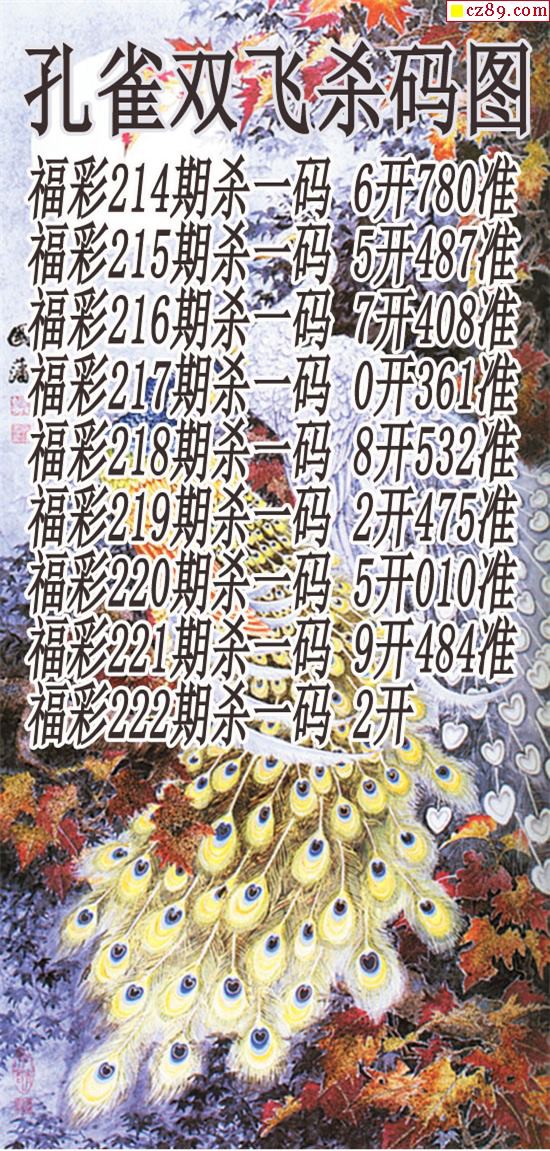 cz89.com
孔雀双飞杀码图
福彩214期杀一码 6开780准
福彩215期杀一码 5开487准
福彩216期杀一码 7开408准
福彩217期杀一码 0开361准
福彩218期杀一码 8开532准
福彩219期杀一码 2开475准
福彩220期杀一码 5开010准
福彩221期杀一码 9开484准
福彩222期杀一码 2开